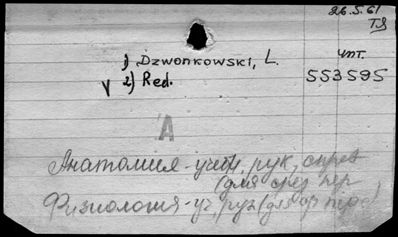 26.5.61
1) Dzwonkowski, L. чит.
V 2) Red. 553595
А
Анатомия - учебн, рук, справ
(для сред пер
Физиология - уч, рук (для ср перс)